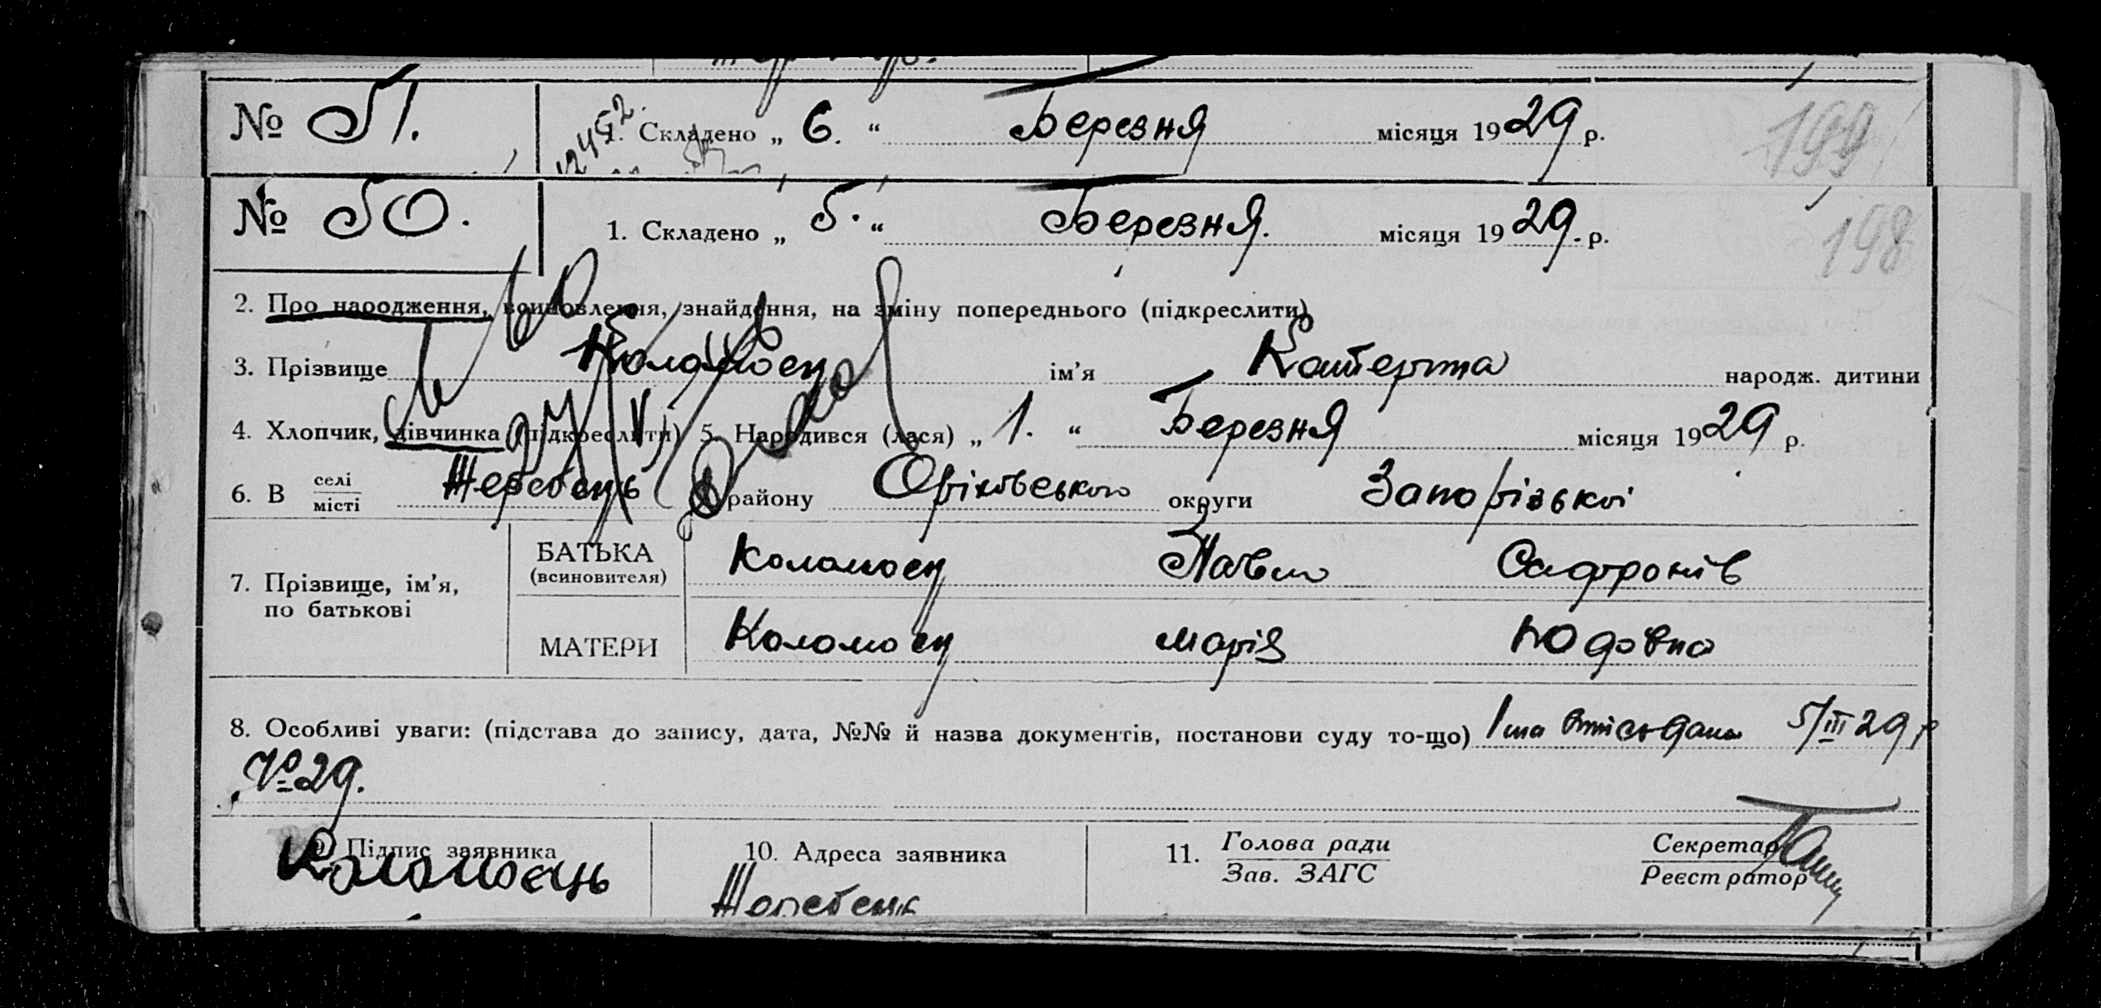 № 51. 1. Складено „ 6. “ Березня місяця 1929 р. 199
12452.
№ 50. 1. Складено „ 5. “ Березня. місяця 1929. р. 198
2. Про народження, всиновлення, знайдення, на зміну попереднього (підкреслити)
3. Прізвище Коломоец ім’я Катерина народж. дитини
4. Хлопчик, дівчинка (підкреслити) 5. Народився (лася) „ 1. “ Березня місяця 1929 р.
6. В селі місті Жеребець району Оріхівського округи Запорізької
7. Прізвище, ім’я, по батькові
БАТЬКА (всиновителя) Коломоец Павло Сафронів
МАТЕРИ Коломоец Марія Юдовна
8. Особливі уваги: (підстава до запису, дата, №№ й назва документів, постанови суду то-що) 5/III 29 р
№ 29.
9. Підпис заявника 10. Адреса заявника 11. Голова ради Зав. ЗАГС Секретар Реєстратор
Коломоєць Жеребець